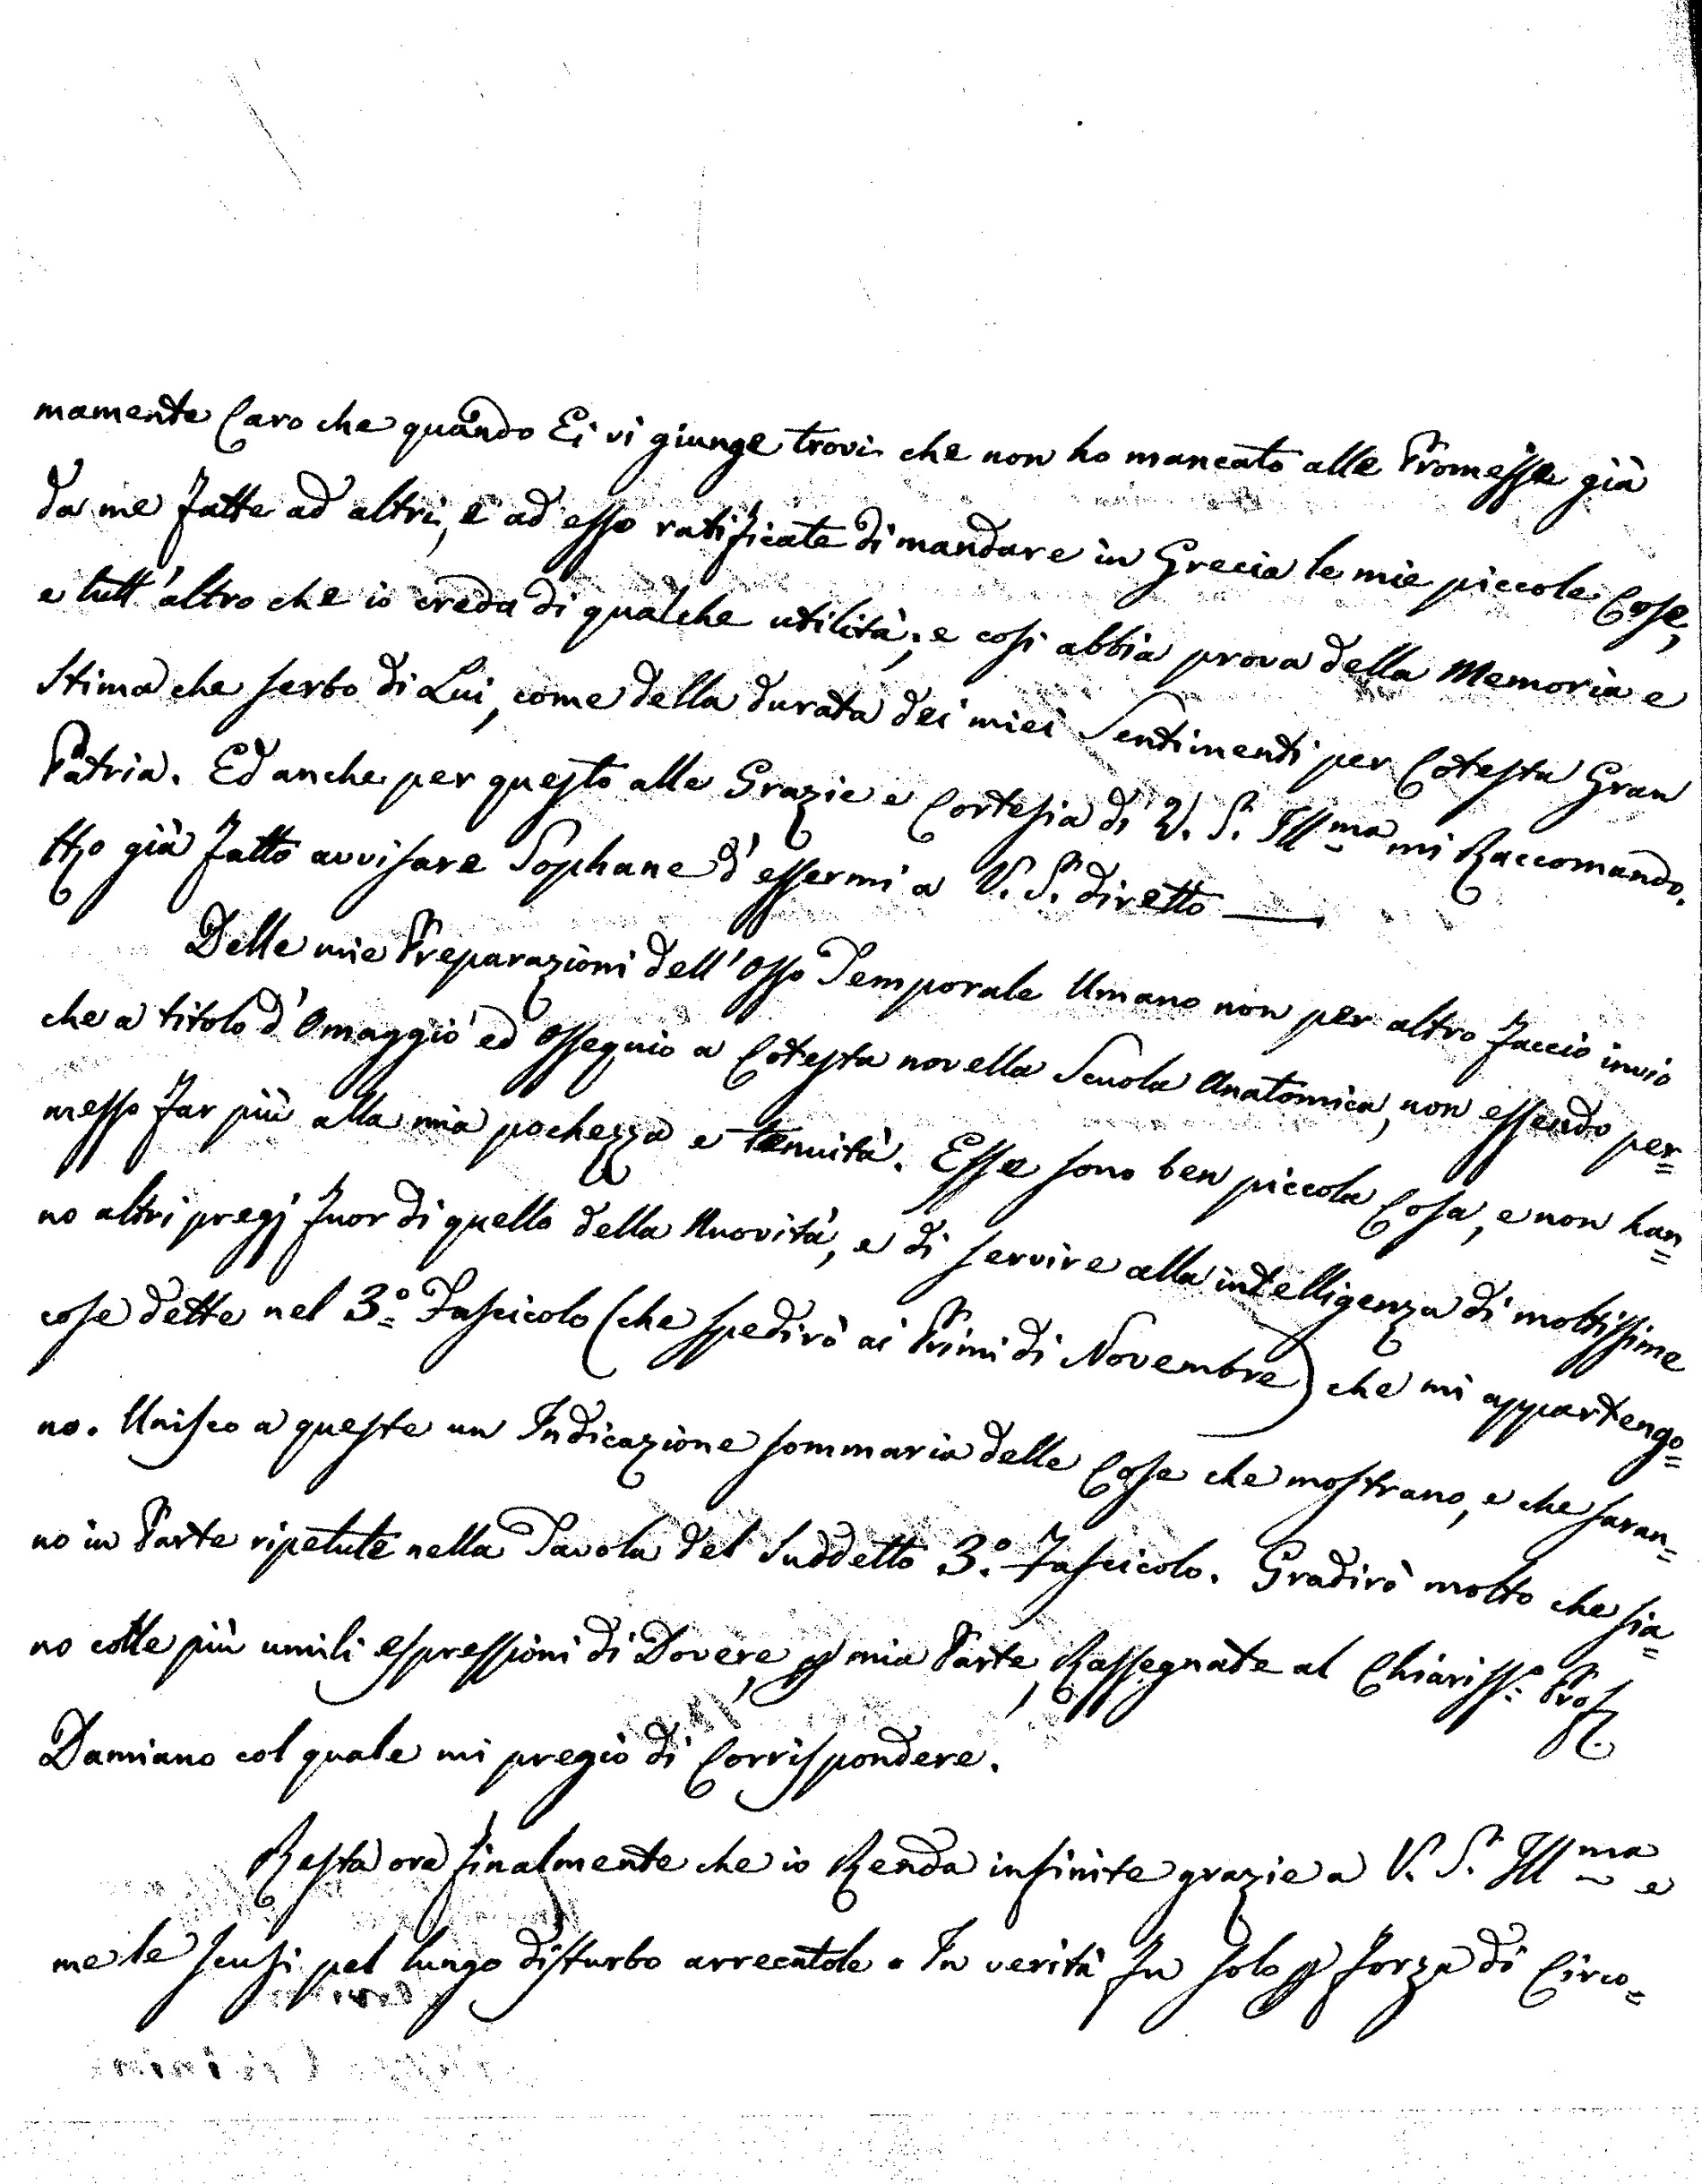 mamente Caro che quando Ei vi giunge trovi che non ho mancato alle Promesse già
da me fatte ad altri, e ad esso ratificate di mandare in Grecia le mie piccole Cose,
e tutt'altro che io creda di qualche utilità; e così abbia prova della Memoria e
Stima che serbo di Lui, come della durata dei miei Sentimenti per Cotesta Gran
Patria. Ed anche per questo alle Grazie e Cortesia di V. S. Ill.ma mi Raccomando.
Ho già fatto avvisare Sophane d'essermi a V. S. diretto —
Delle mie Preparazioni dell'Osso Temporale Umano non per altro faccio invio
che a titolo d'Omaggio ed Ossequio a Cotesta novella Scuola Anatomica, non essendo per=
messo far più alla mia pochezza e tenuità. Esse sono ben piccola Cosa, e non han=
no altri pregj fuor di quello della Nuovità, e di servire alla intelligenza di moltissime
cose dette nel 3.º Fascicolo (che spedirò ai Primi di Novembre) che mi appartengo=
no. Unisco a queste un Indicazione sommaria delle Cose che mostrano, e che saran=
no in Parte ripetute nella Tavola del Suddetto 3.º Fascicolo. Gradirò molto che sia=
no colle più umili espressioni di Dovere, p mia Parte, Rassegnate al Chiariss.º Prof.
Damiano col quale mi pregio di Corrispondere.
Resta ora finalmente che io Renda infinite grazie a V. S. Ill.ma e
me le scusi pel lungo disturbo arrecatole. In verità fu solo p forza di Circo=